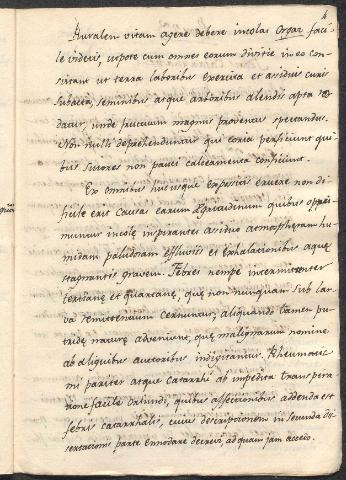 4
Ruralem vitam agere debere incolas Orgax faci-
le videtis, utpote cum omnes eorum divitie in eo con-
sistant ut terra laboribus exercita et assiduis curis
subacta, seminibus atque arboribus alendis apta red
datur, unde fructuum magnus proventus spectandus.
Non nulli deprehenduntur qui coria perficiunt qui-
bus sutores non pauci calceamenta conficiunt.
Ex omnibus huc usque expositis eruere non di-
ficile erit causas earum Ægritudinum quibus oppri-
muntur incolę inspirantes assiduo atmospheram hu-
midam paludosam effluviis et exhalationibus aquę
stagnantis gravem. Febres nempe intermittentes
tertianę et quartanę, que non nunquam sub lar-
va remittentium cernuntur, aliquando tamen pu-
tridę naturę adveniunt, quę malignarum nomine
ab aliquibus auctoribus indigitantur. Rheumatis-
mi pariter atque Catarrhi ab impedita transpira
tione facile oriundi, quibus affectionibus addenda est
febris catarrhalis, cuius descriptionem in secunda di-
sertationis parte enodare decrevi, ad quam jam accedo.